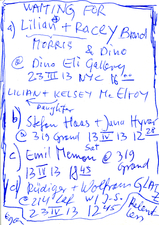 WAITING FOR
a) Lilian + RACEY Brand
MORRIS & Dino
@ Dino Eli Gallery
23 III 13 NYC 16
LILIAN + KELSEY Mc ELROY
Daughter
b) Stefan Haas + Juno Hyver
@ 319 Grand 13 IV 13 12 28
Sat
c) Emil Memon @ 319
Grand
13 IV 13 1
d) Rüdiger + Wolfram GLATZ
@ W/ J.S.
23 IV 13 12 45